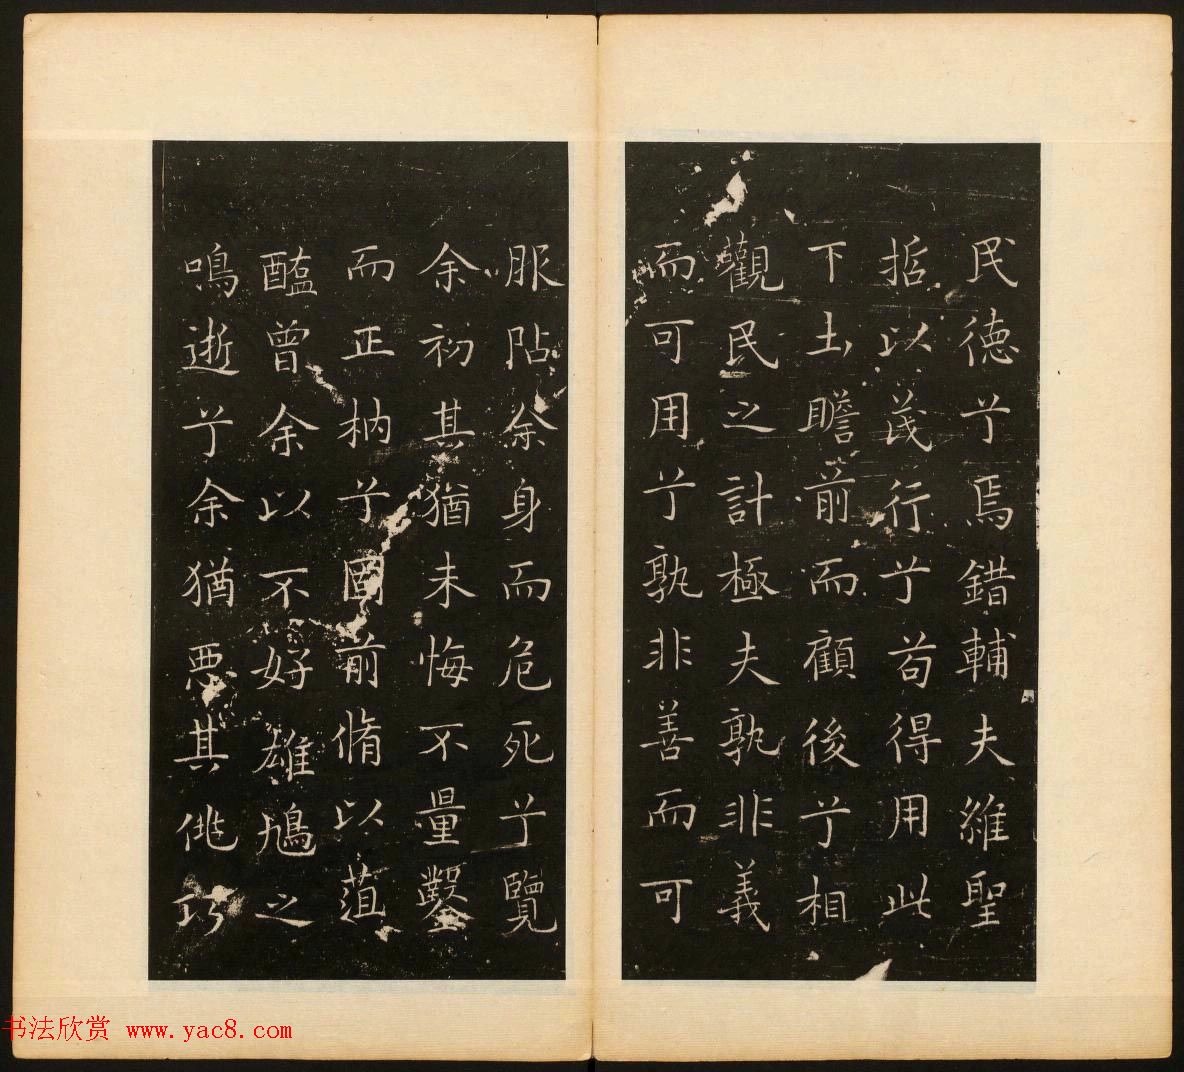 民德兮焉錯輔夫維聖
哲以茂行兮苟得用此
下土瞻前而顧後兮相
觀民之計極夫孰非義
而可用兮孰非善而可
服阽余身而危死兮覽
余初其猶未悔不量鑿
而正枘兮固前脩以菹
醢曾余以不好雄鳩之
鳴逝兮余猶惡其佻巧
书法欣赏 www.yac8.com